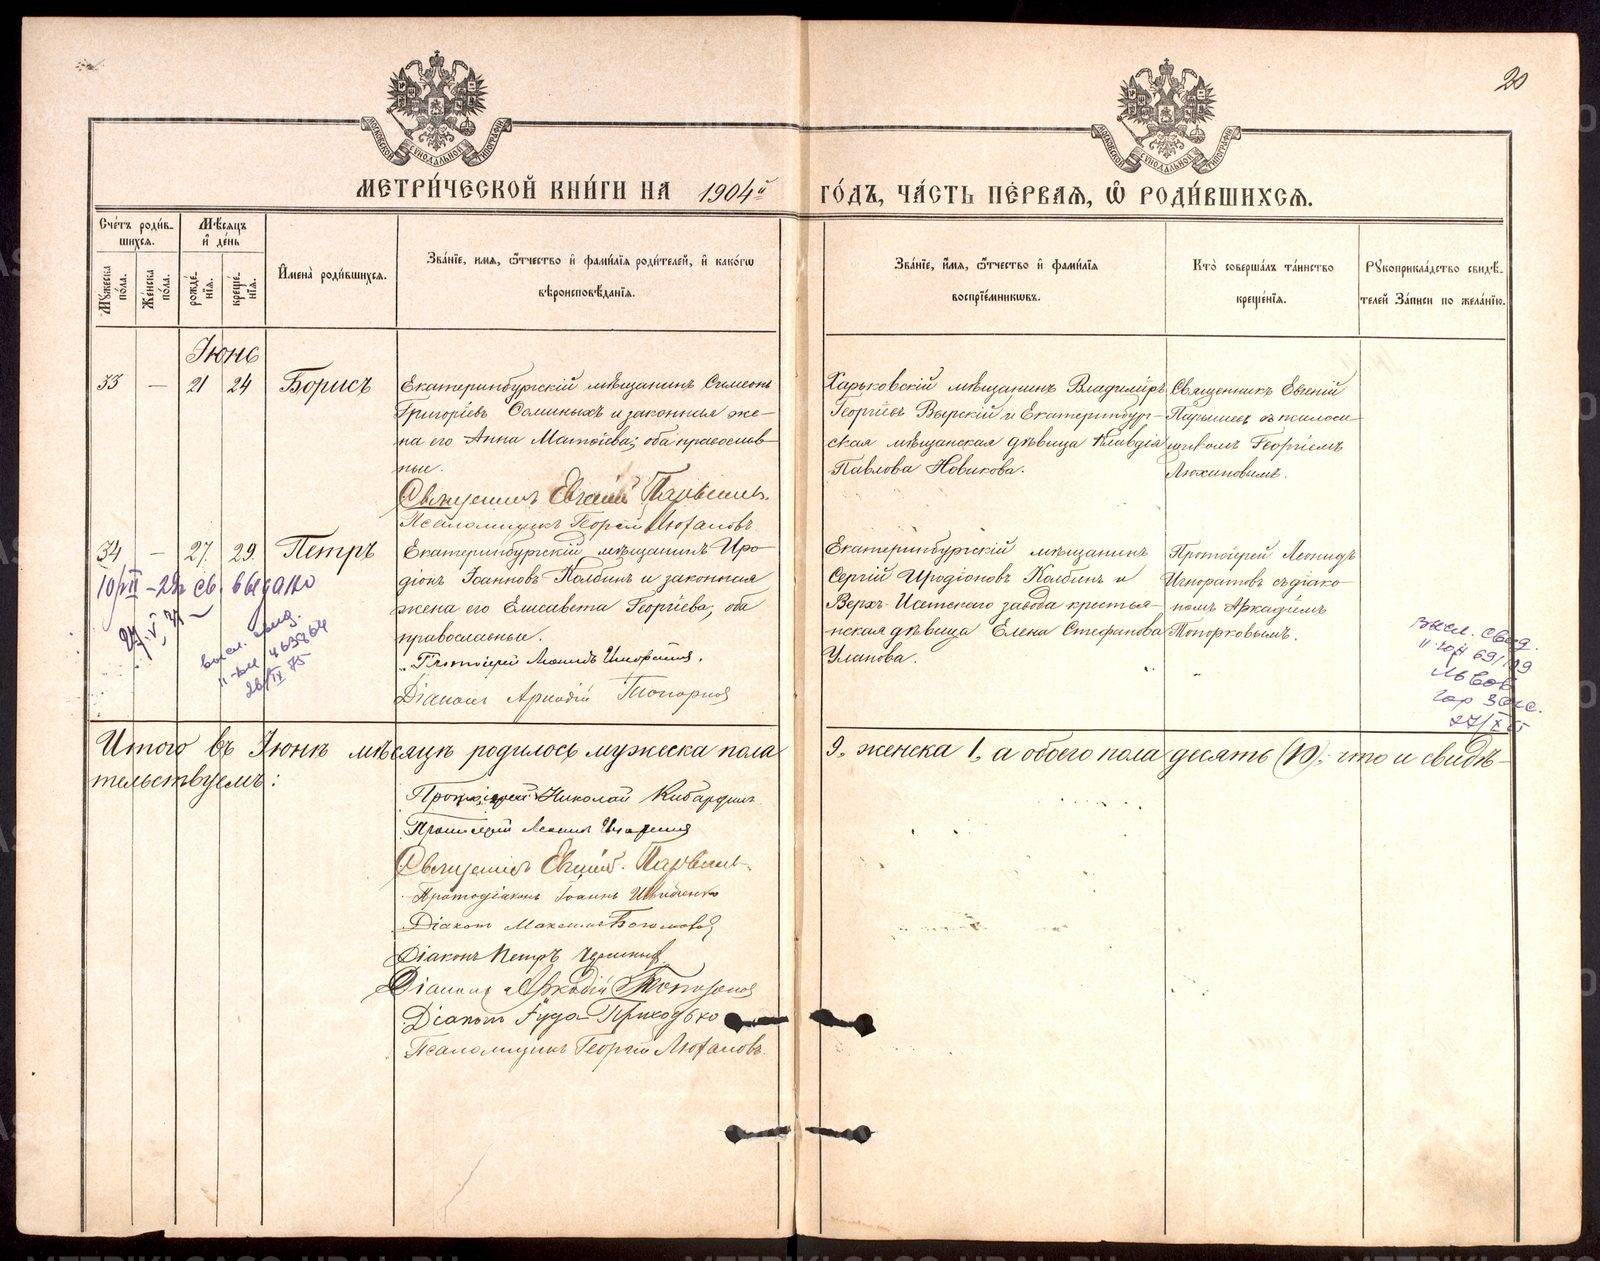 20
МОСКОВСКОЙ СѴНОДАЛЬНОЙ ТИПОГРАФІИ
МОСКОВСКОЙ СѴНОДАЛЬНОЙ ТИПОГРАФІИ
МЕТРИ́ЧЕСКОЙ КНИ́ГИ НА 1904й ГО́ДЪ, ЧА́СТЬ ПЕ́РВАѦ, Ѽ РОДИ́ВШИХСѦ.
Сче́тъ роди́вшихсѧ.
Мужеска по́ла.
Же́нска по́ла.
Мѣ́сѧцъ и҆ де́нь
рожде́нїѧ.
креще́нїѧ.
И҆мена̀ роди́вшихсѧ.
Зва́нїе, имѧ, ѻ҆́тчество и҆ фами́лїѧ роди́телей, и҆ како́гѡ
вѣроисповѣ́данїѧ.
Зва́нїе, и҆́мѧ, ѻ҆́тчество и҆ фами́лїѧ
воспрїе́мникѡвъ.
Кто̀ соверша́лъ та́инство
креще́нїѧ.
Рукоприкла́дство свидѣ́-
телей За́писи по жела́нїю.
Іюнь
33 — 21 24 Борисъ
Екатеринбургскій мѣщанинъ Симеонъ
Григоріевъ Соминыхъ и законная же-
на его Анна Матѳіева; оба православ-
ные.
Священникъ Евгеній
Псаломщикъ Георгій Люхановъ
Харьковскій мѣщанинъ Владиміръ
Георгіевъ Вырскій и Екатеринбург-
ская мѣщанская дѣвица Клавдія
Павлова Новикова.
Священникъ Евгеній
съ псалом-
щикомъ Георгіемъ
Люхановымъ.
34 — 27 29 Петръ
Екатеринбургскій мѣщанинъ Иро-
діонъ Іоанновъ Колбинъ и законная
жена его Елисавета Георгіева; оба
православные.
Протоіерей Леонидъ Игноратовъ.
Діаконъ Аркадій Топорковъ
Екатеринбургскій мѣщанинъ
Сергій Иродіоновъ Колбинъ и
Верхъ-Исетскаго завода крестья-
нская дѣвица Елена Стефанова
Уланова.
Протоіерей Леонидъ
Игноратовъ съ діако-
номъ Аркадіемъ
Топорковымъ.
10/VII — св. выдано
высл. свид.
26/IX 75
высл. свид.
Львов
гор Загс.
Итого въ Іюнѣ мѣсяцѣ родилось мужеска пола 9, женска 1, а обоего пола десять (10), что и свидѣ-
тельствуемъ:
Протоіерей Николай Кибардинъ
Протоіерей Леонидъ Игноратовъ
Священникъ Евгеній
Протодіаконъ Іоаннъ
Діаконъ Максимъ Богомоловъ
Діаконъ Петръ
Діаконъ Аркадій Топорковъ
Діаконъ Іуда Приходько
Псаломщикъ Георгій Люхановъ.